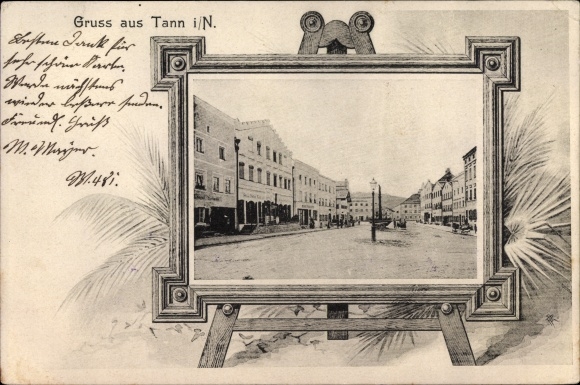 Gruss aus Tann i/N.
Besten Dank für
sehr schöne Karte.
Werde nächstens
wieder bessere senden.
Freundl. Gruß
M. Mayer.